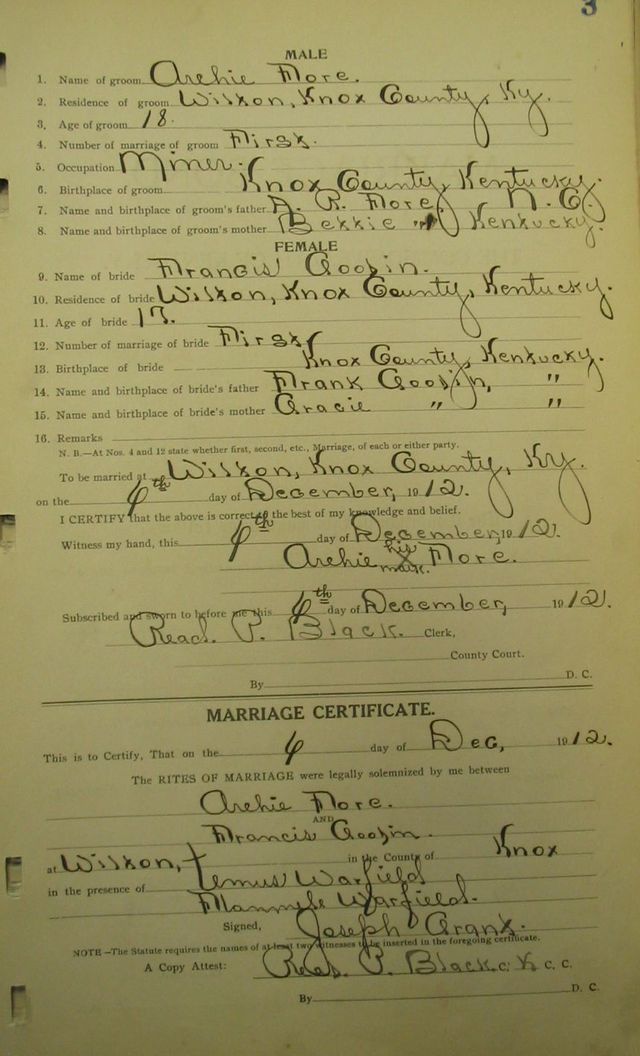 3
MALE
1. Name of groom Archie Fore.
2. Residence of groom Wilton, Knox County, Ky.
3. Age of groom 18.
4. Number of marriage of groom First.
5. Occupation Miner.
6. Birthplace of groom Knox County, Kentucky.
7. Name and birthplace of groom's father A. R. Fore, N.C.
8. Name and birthplace of groom's mother Bettie " Kentucky.
FEMALE
9. Name of bride Francis Goodin.
10. Residence of bride Wilton, Knox County, Kentucky.
11. Age of bride 17.
12. Number of marriage of bride First
13. Birthplace of bride Knox County, Kentucky.
14. Name and birthplace of bride's father Frank Goodin, "
15. Name and birthplace of bride's mother Gracie " "
16. Remarks
N. B.—At Nos. 4 and 12 state whether first, second, etc., Marriage, of each or either party.
To be married at Wilton, Knox County, Ky.
on the day of December, 1912.
I CERTIFY that the above is correct to the best of my knowledge and belief.
Witness my hand, this day of December, 1912.
his
Archie X Fore.
mark.
Subscribed and sworn to before me this day of December, 1912.
Read P. Black. Clerk,
County Court.
By D. C.
MARRIAGE CERTIFICATE.
This is to Certify, That on the day of Dec, 1912.
The RITES OF MARRIAGE were legally solemnized by me between
Archie Fore.
AND
Francis Goodin.
at Wilton, in the County of Knox
in the presence of Lemus Warfield
Warfield.
Signed, Joseph Grant.
NOTE—The Statute requires the names of at least two witnesses to be inserted in the foregoing certificate.
A Copy Attest: Read P. Black C. K C. C.
By D. C.